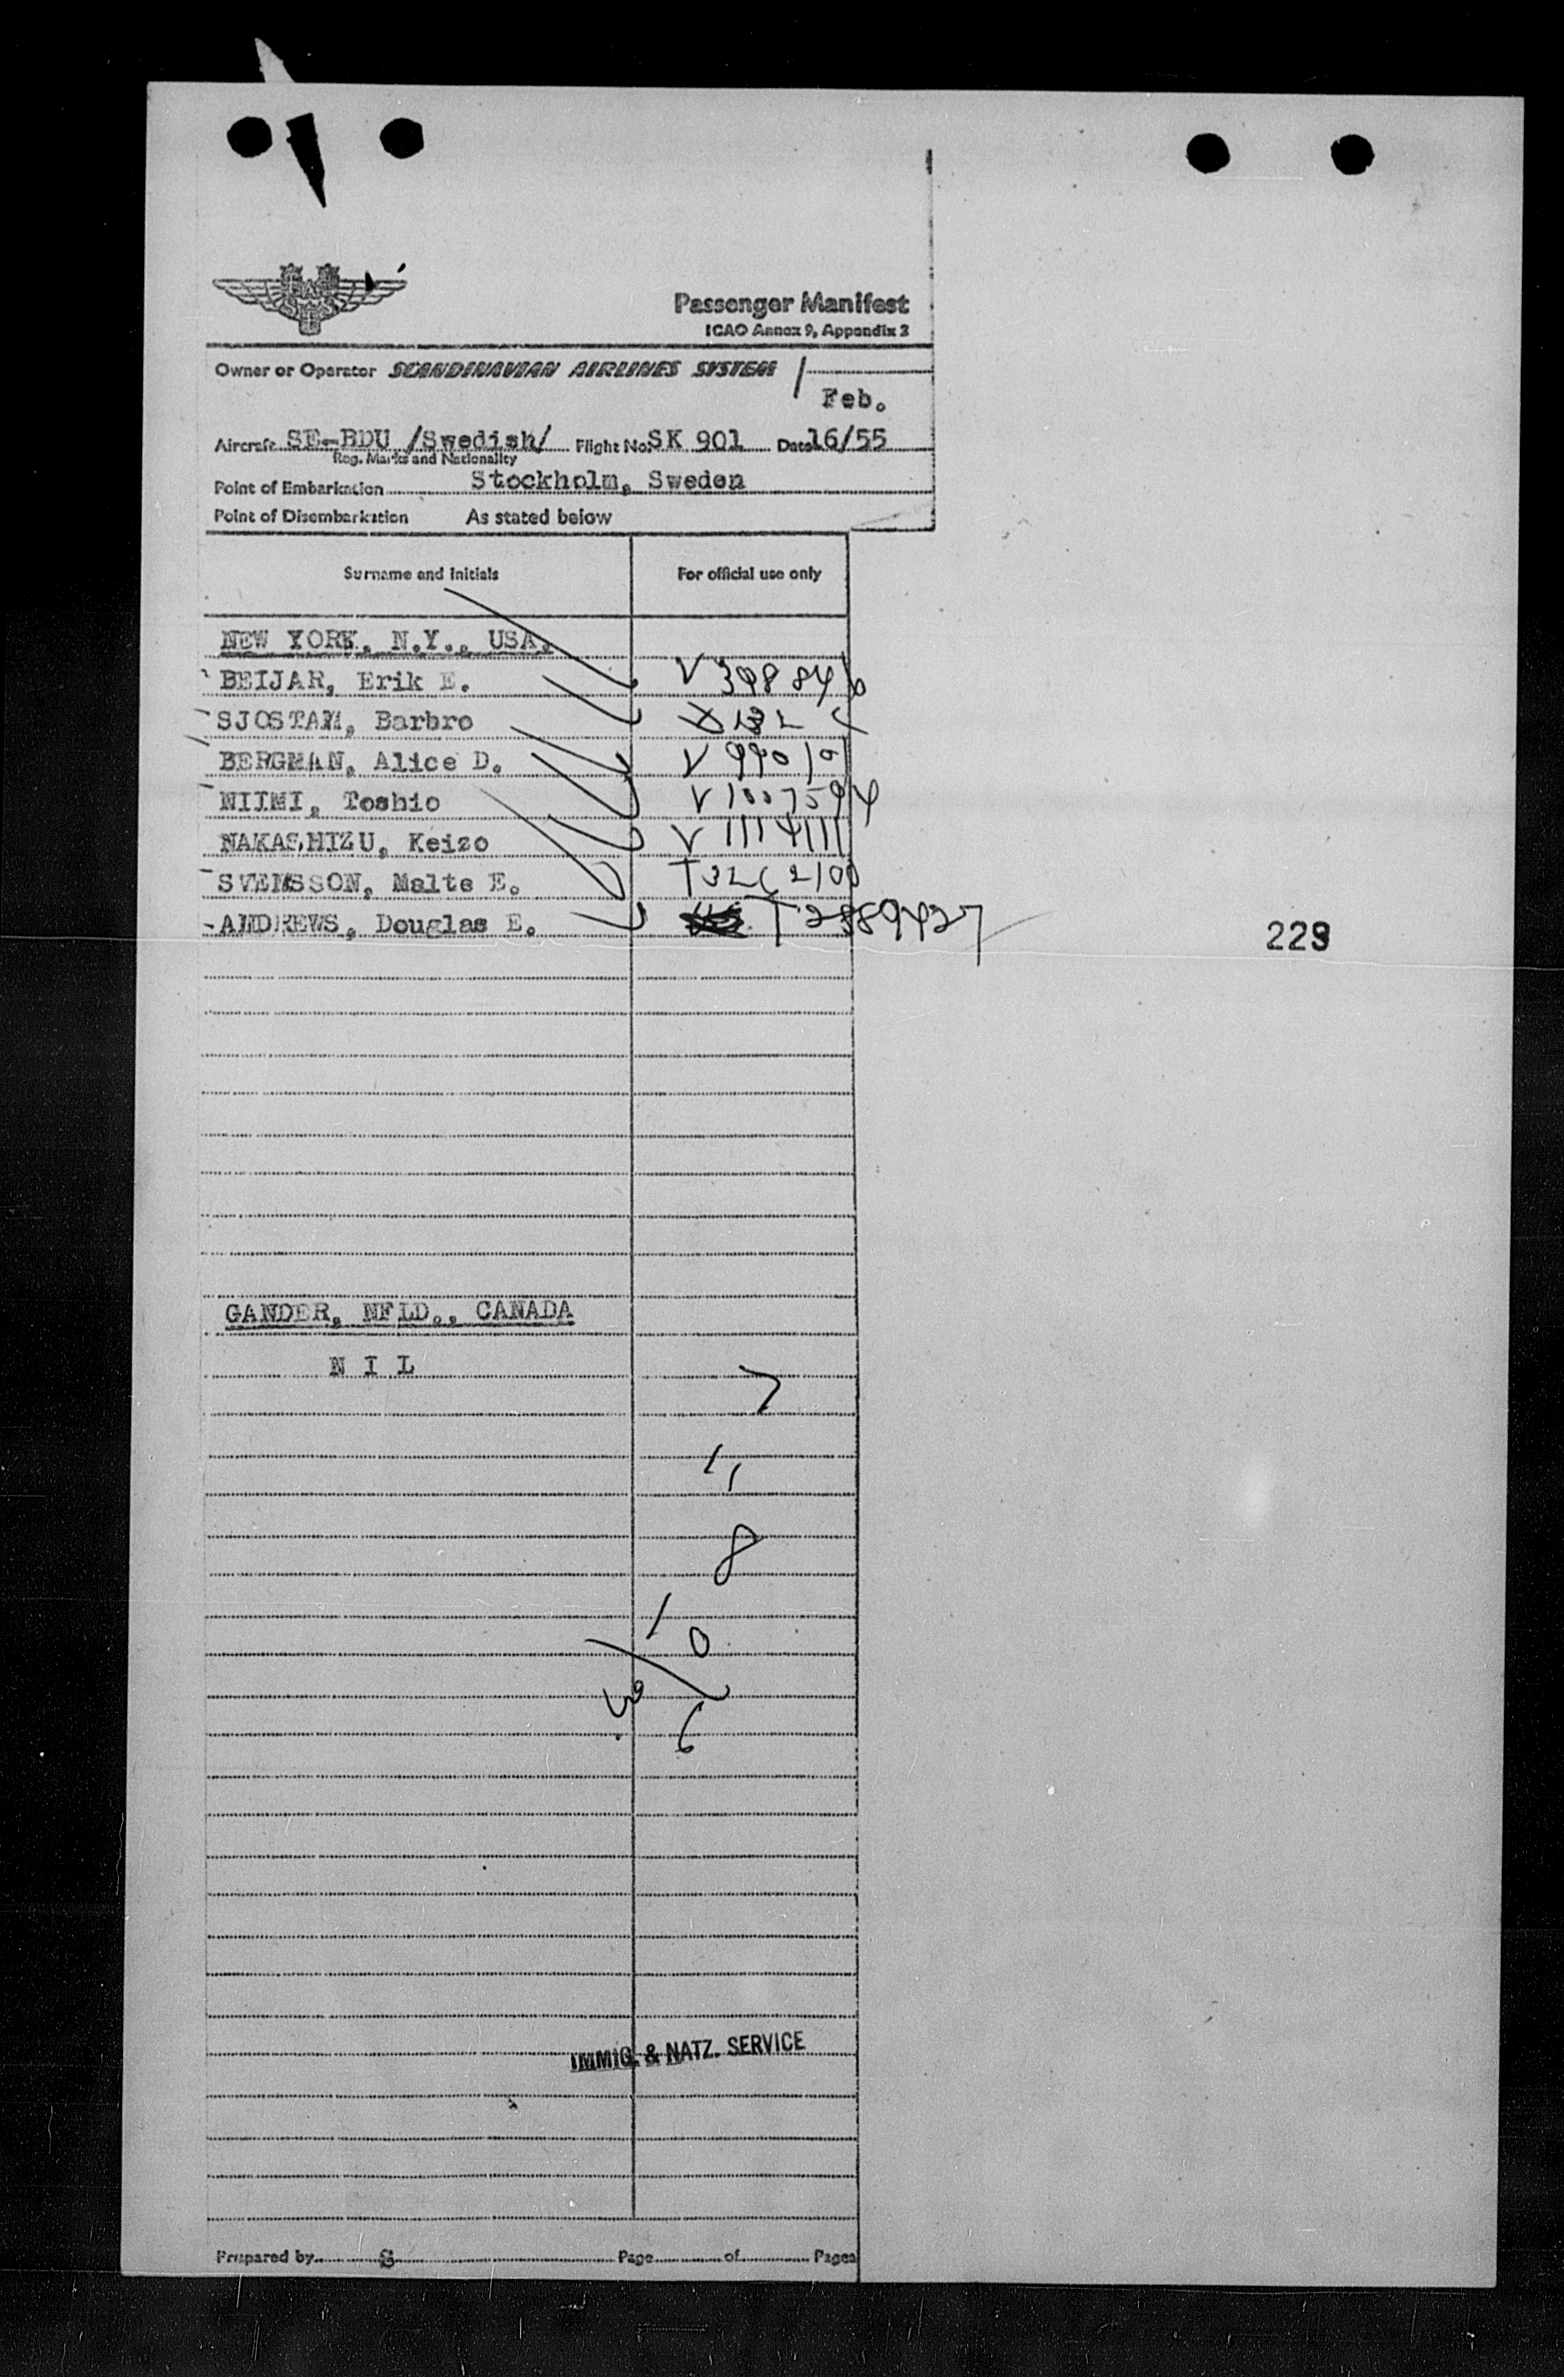 Passenger Manifest
ICAO Annex 9, Appendix 3
Owner or Operator SCANDINAVIAN AIRLINES SYSTEM
Feb.
Aircraft SE-BDU /Swedish/ Flight No. SK 901 Date 16/55
Reg. Marks and Nationality
Point of Embarkation Stockholm, Sweden
Point of Disembarkation As stated below
Surname and initials For official use only
NEW YORK, N.Y., USA.
BEIJAR, Erik E. V 398846
SJOSTAM, Barbro
BERGMAN, Alice D. V 99010
NIIMI, Toshio V 1007594
NAKASHIZU, Keizo V 1114111
SVENSSON, Malte E.
ANDREWS, Douglas E. T 2889427
229
GANDER, NFLD., CANADA
N I L
7
1,
8
1 0
3 6
IMMIG. & NATZ. SERVICE
Prepared by S Page of Pages